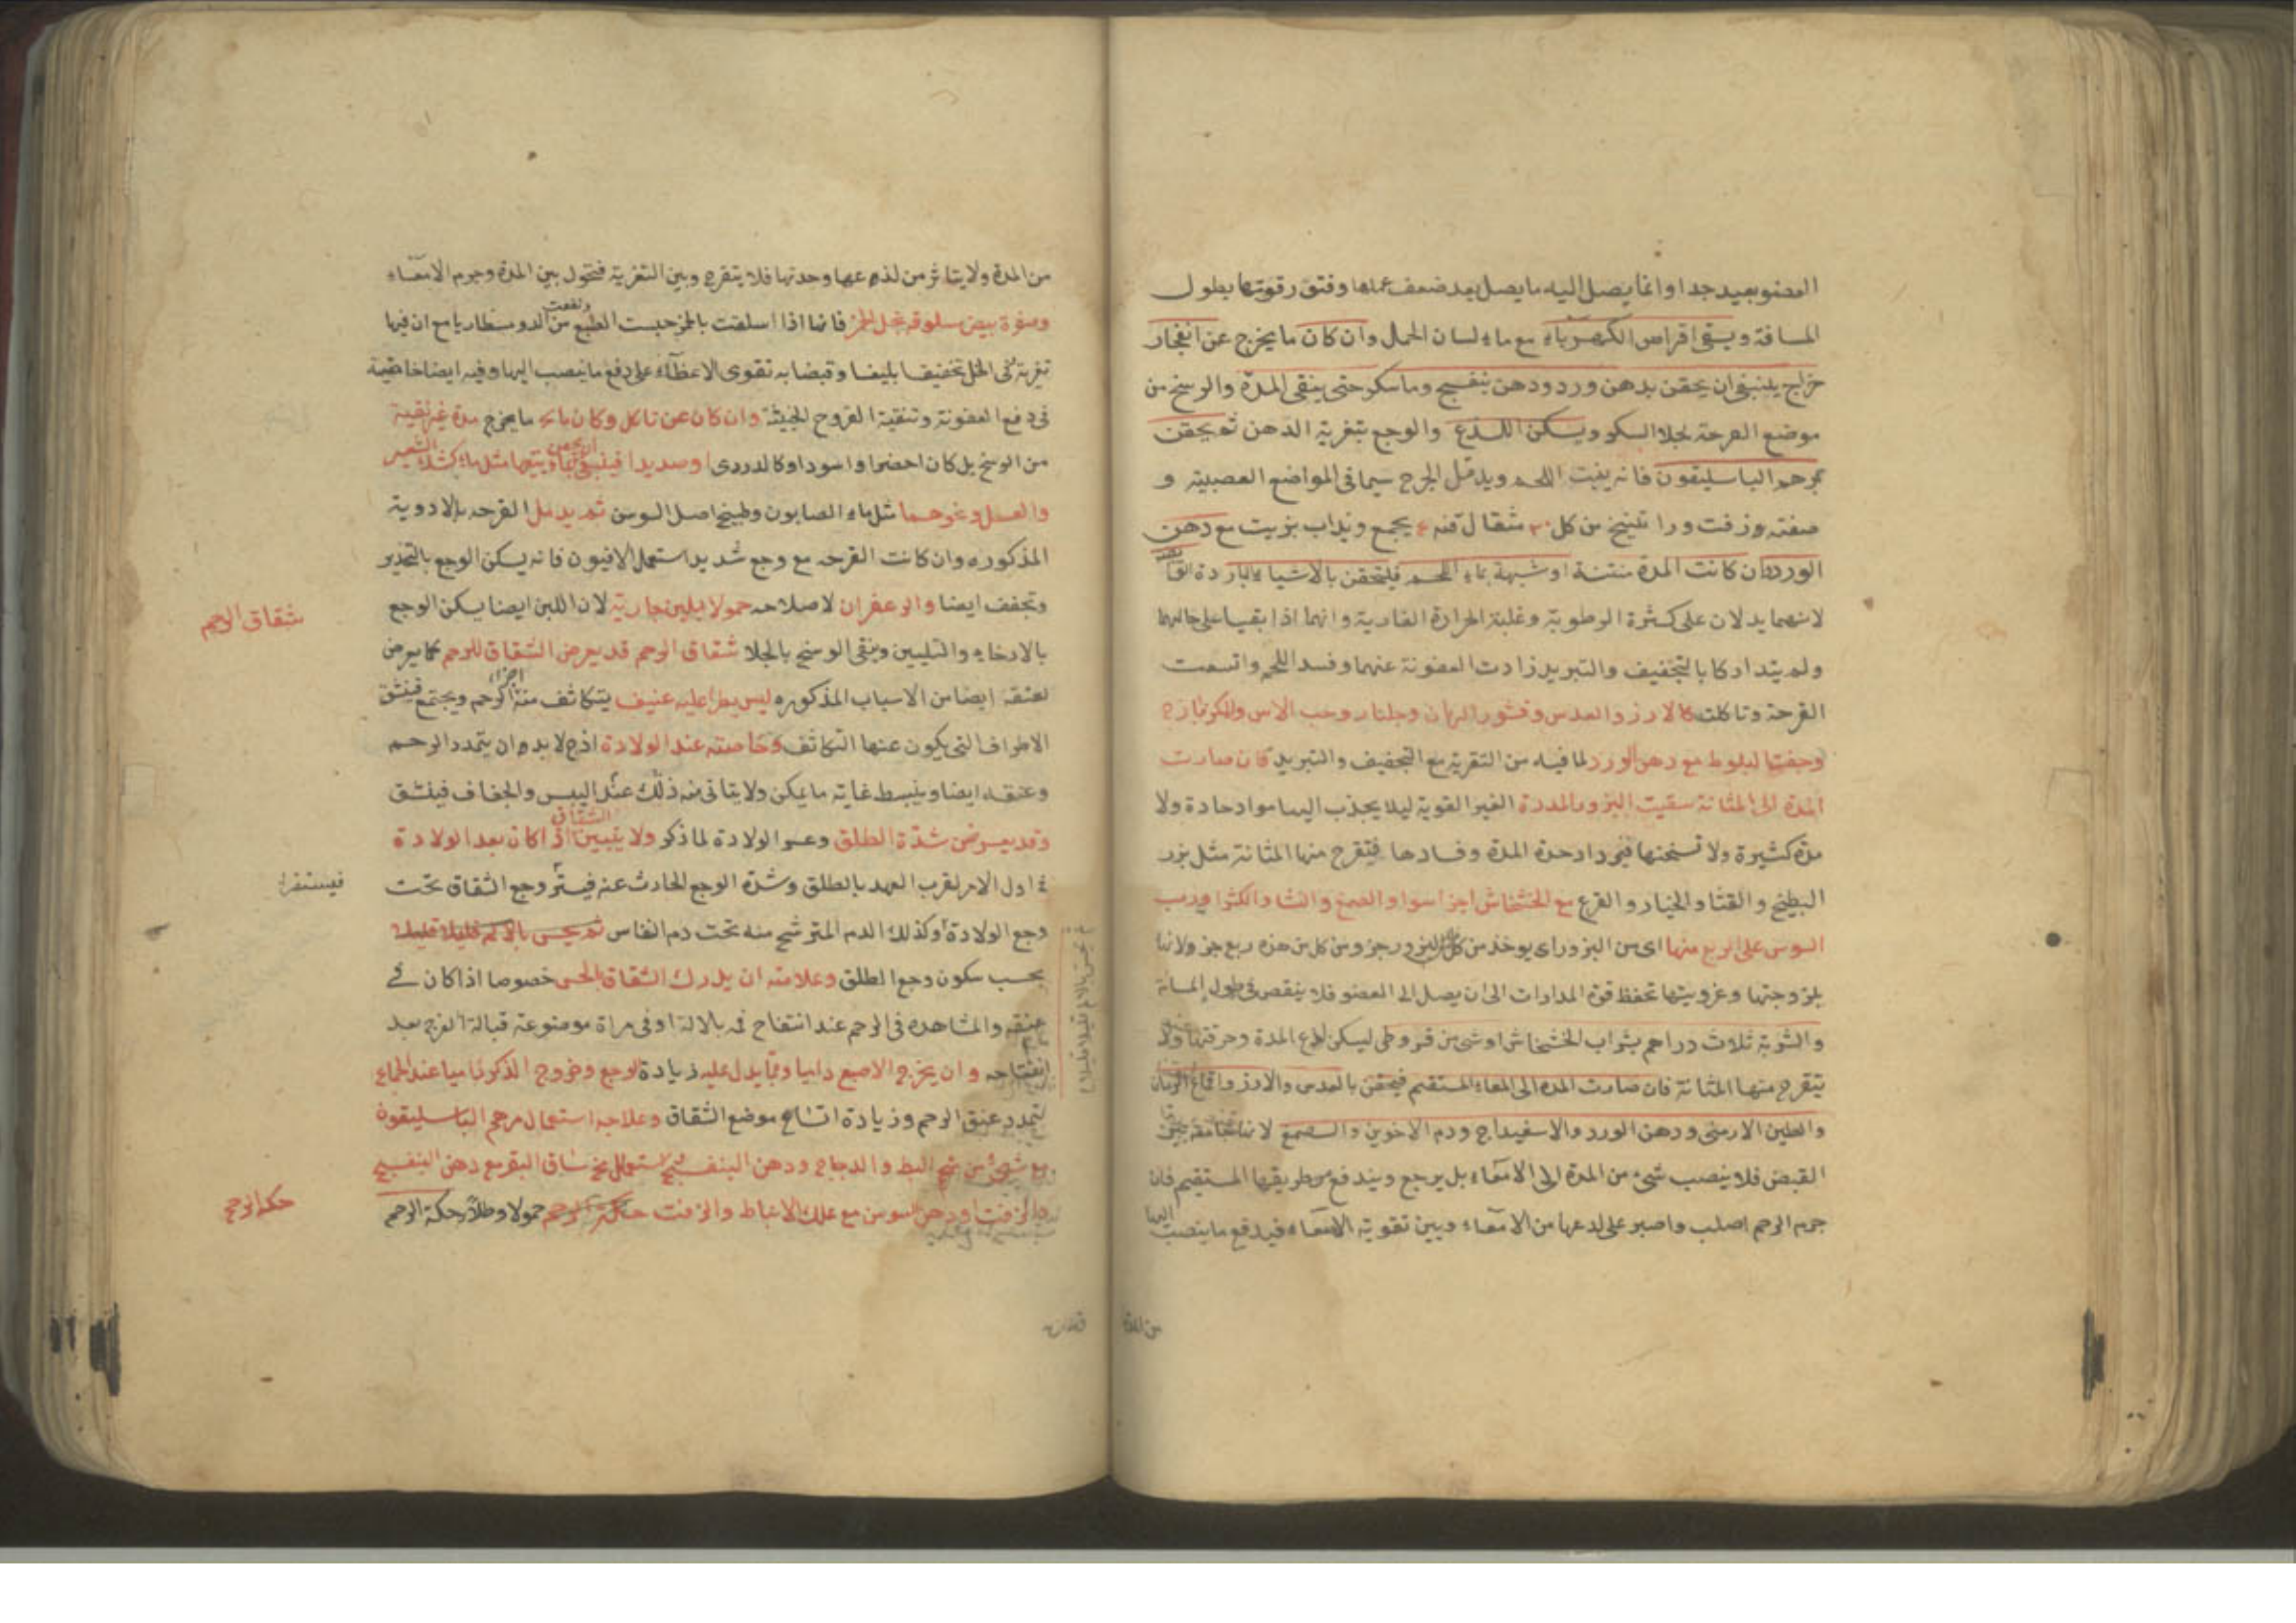 العضو بعيد جدا وانما يصل اليه ما يصل بعد ضعف عملها وفتق رقوتها بطول
المسافة ويسقى اقراص الكهرباء مع ماء لسان الحمل وان كان ما يخرج عن انفجار
خراج ينبغى ان يحقن بدهن ورد ودهن بنفسج وماسكر حتى ينقى المدة والوسخ من
موضع القرحة بجلا السكر ويسكن اللذع والوجع بتغرية الدهن ثم يحقن
بمرهم الباسليقون فانه ينبت اللحم ويدمل الجرح سيما فى المواضع العصبية و
صفته زفت وراتينج من كل ٣٠ مثقال قنه ٤ يجمع ويذاب بزيت مع دهن
الورد وان كانت المدة منتنة او شبهة بماء اللحم فليحقن بالاشياء الباردة
لانهما يدلان على كثرة الرطوبة وغلبة الحرارة الغارية وانهما اذا بقيا على حالهما
ولم يتداركا بالتجفيف والتبريد زادت العفونة عنهما وفسد اللحم واتسعت
القرحة وتاكلت كالارز والعدس وقشور الرمان وجلنار وحب الاس والكزمازج
وجفت البلوط مع دهن الورد لما فيه من التقرية مع التجفيف والتبريد فان صارت
المدة الى المثانة سقيت البزور المدرة الغير القوية ليلا يجذب اليها مواد حادة ولا
مدة كثيرة ولا تسخنها فيزداد حدة المدة وفسادها فتقرح منها المثانة مثل بزر
البطيخ والقثا والخيار والقرع مع الخشخاش اجزا سوا والصمغ والنشا والكثيرا ورب
السوس على الربع منها اى من البزور اى يوخذ من كل البزور جز ومن كل من هذه ربع جز ولانها
بلزوجتها وغرويتها تحفظ قوة المدارات الى ان يصل الى العضو فلا ينقص فى طول المسافة
والشربة ثلاث دراهم بشراب الخشخاش او شى من قروطى ليسكن لذع المدة وحرقتها ولا
يتقرح منها المثانة فان صارت المدة الى المعاء المستقيم فيحقن بالعدس والارز واقماع الرمان
والطين الارمنى ودهن الورد والاسفيداج ودم الاخوين والصمغ لانها
القبض فلا ينصب شىء من المدة الى الامعاء بل يرجع ويندفع من طريقها المستقيم فان
جرم الرحم اصلب واصبر على لذعها من الامعاء وبين تقوية الامعاء فيدفع ما ينصب اليها
من المدة
من المدة ولا يتاثر من لذعها وحدتها فلا يتقرح وبين التغرية فتحول بين المدة وجرم الامعاء
وصفرة بيض سلوقة بخل الخمر فانها اذا اسلقت بالخل حبست الطبع ونفعت من الدوسنطاريا مع ان فيها
تغرية فى الخل تخفيفا بليغا وقبضا به تقوى الاعضاء على دفع ما ينصب اليها وفيه ايضا خاصية
فى دفع العفونة وتنقية القروح الخبيثة وان كان عن تاكل وكان ما يخرج مدة غير نقية
من الوسخ بل كان اخضرا واسود او كالدردى او صديدا فينبغى ان يحقن مثل ماء كشك الشعير
والعسل ونحوهما مثل ماء الصابون وطبيخ اصل السوسن ثم يدمل القرحه بالادوية
المذكوره وان كانت القرحه مع وجع شديد استعمل الافيون فانه يسكن الوجع بالتخدير
وتجفف ايضا والزعفران لاصلاحه حمولا بلبن جارية لان اللبن ايضا يسكن الوجع
بالارخاء والتليين وينقى الوسخ بالجلا شقاق الرحم قد يعرض الشقاق للرحم كما يعرض
لعنقه ايضا من الاسباب المذكوره ليبس يطرا عليه عنيف يتكاثف منه اجزا الرحم ويجتمع فينشق
الاطراف التى يكون عنها التكاثف وخاصته عند الولادة اذح لا بد وان يتمدد الرحم
وعنقه ايضا وينبسط غاية ما يمكن ولا يتاتى منه ذلك عند اليبس والجفاف فينشق
وقد يعرض شدة الطلق وعسر الولادة لما ذكر ولا يتبين الشقاق اذا كان بعد الولادة
فى اول الامر لقرب العهد بالطلق وشدة الوجع الحادث عنه فيستر وجع الشقاق تحت
وجع الولادة وكذلك الدم المترشح منه تحت دم النفاس ثم يحس بالالم قليلا قليلا
بحسب سكون وجع الطلق وعلامته ان يدرك الشقاق بالحس خصوصا اذا كان فى
عنقه والمشاهدة فى الرحم عند انتفاح فمه بالالة او فى مراة موضوعة قبالة الفرج بعد
انفتاحه وان يخرج الاصبع داميا ومما يدل عليه زيادة الوجع وخروج الذكر داميا عند الجماع
لتمدد عنق الرحم وزيادة اتساع موضع الشقاق وعلاجه استعمال مرهم الباسليقون
مع شىء من شحم البط والدجاج ودهن البنفسج استعمال مخ ساق البقر مع دهن البنفسج
والزفت ودهن السوسن مع علك الانباط والزفت حكة الرحم حمولا وطلاً حكة الرحم
شقاق الرحم
فيستقرا
حكة الرحم
ثم يحس بالالم قليلا قليلا